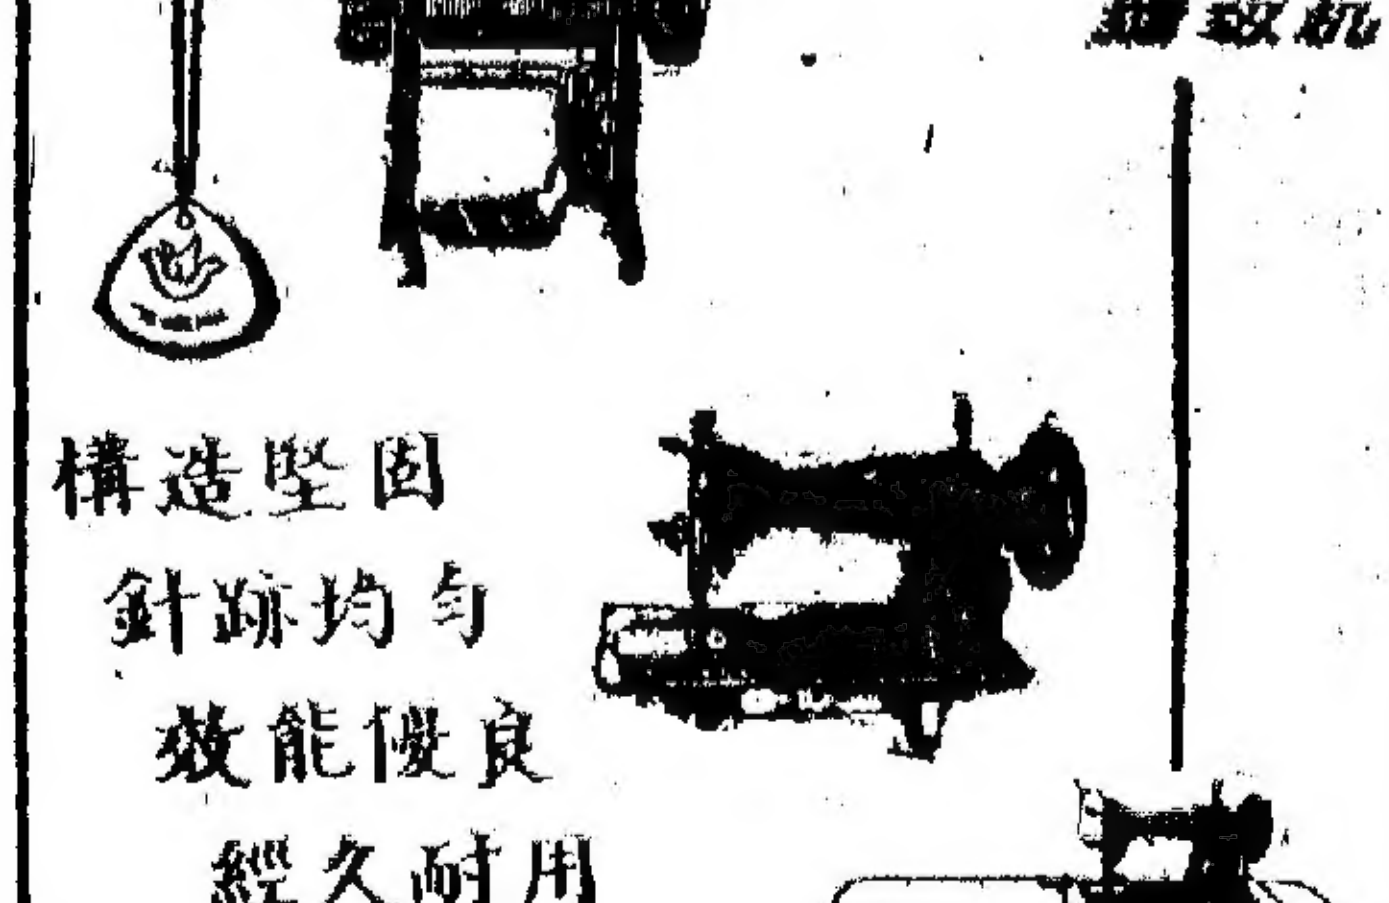 構造堅固
針跡均勻
效能優良
經久耐用